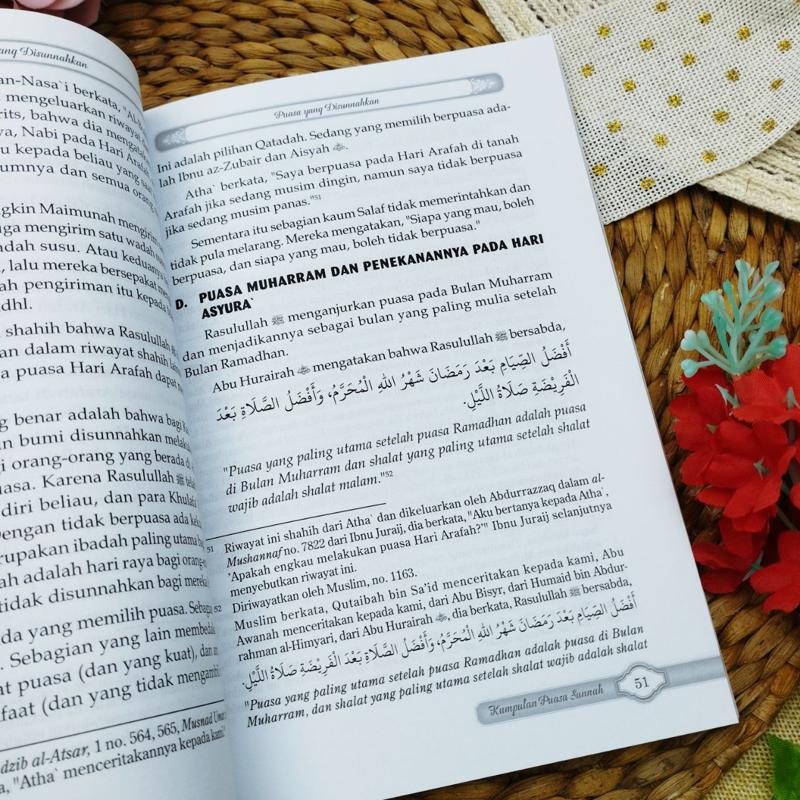 ang Disunnahkan
an-Nasa`i berkata,
mengeluarkan riwayat
rits, bahwa dia menga
ya, Nabi pada Hari Arafah
u kepada beliau yang
umnya dan semua orang
gkin Maimunah mengirim
uga mengirim satu wadah
adah susu. Atau keduanya
, lalu mereka bersepakat
ah pengiriman itu kepada
dhl.
shahih bahwa Rasulullah
an dalam riwayat shahih
a puasa Hari Arafah dapat
g benar adalah bahwa bagi
n bumi disunnahkan
i orang-orang yang berada di
uasa. Karena Rasulullah ﷺ
diri beliau, dan para
Dengan tidak berpuasa ada
erupakan ibadah paling utama
h adalah hari raya bagi orang
tidak disunnahkan bagi
da yang memilih puasa.
. Sebagian yang lain
at puasa (dan yang kuat), dan
faat (dan yang tidak
dzib al-Atsar, 1 no. 564, 565, Musnad
a, "Atha` menceritakannya kepada
Puasa yang Disunnahkan
Ini adalah pilihan Qatadah. Sedang yang memilih berpuasa ada-
lah Ibnu az-Zubair dan Aisyah
Atha` berkata, "Saya berpuasa pada Hari Arafah di tanah
Arafah jika sedang musim dingin, namun saya tidak berpuasa
jika sedang musim panas."51
Sementara itu sebagian kaum Salaf tidak memerintahkan dan
tidak pula melarang. Mereka mengatakan, "Siapa yang mau, boleh
berpuasa, dan siapa yang mau, boleh tidak berpuasa."
D. PUASA MUHARRAM DAN PENEKANANNYA PADA HARI
ASYURA`
Rasulullah ﷺ menganjurkan puasa pada Bulan Muharram
dan menjadikannya sebagai bulan yang paling mulia setelah
Bulan Ramadhan.
Abu Hurairah mengatakan bahwa Rasulullah ﷺ bersabda,
أَفْضَلُ الصِّيَامِ بَعْدَ رَمَضَانَ شَهْرُ اللهِ الْمُحَرَّمُ، وَأَفْضَلُ الصَّلَاةِ بَعْدَ
الْفَرِيْضَةِ صَلَاةُ اللَّيْلِ.
"Puasa yang paling utama setelah puasa Ramadhan adalah puasa
di Bulan Muharram dan shalat yang paling utama setelah shalat
wajib adalah shalat malam."52
51 Riwayat ini shahih dari Atha` dan dikeluarkan oleh Abdurrazzaq dalam al-
Mushannaf no. 7822 dari Ibnu Juraij, dia berkata, "Aku bertanya kepada Atha`,
'Apakah engkau melakukan puasa Hari Arafah?'" Ibnu Juraij selanjutnya
menyebutkan riwayat ini.
52 Diriwayatkan oleh Muslim, no. 1163.
Muslim berkata, Qutaibah bin Sa'id menceritakan kepada kami, Abu
Awanah menceritakan kepada kami, dari Abu Bisyr, dari Humaid bin Abdur-
rahman al-Himyari, dari Abu Hurairah, dia berkata, Rasulullah ﷺ bersabda,
أَفْضَلُ الصِّيَامِ بَعْدَ رَمَضَانَ شَهْرُ اللهِ الْمُحَرَّمُ، وَأَفْضَلُ الصَّلَاةِ بَعْدَ الْفَرِيْضَةِ صَلَاةُ اللَّيْلِ.
"Puasa yang paling utama setelah puasa Ramadhan adalah puasa di Bulan
Muharram, dan shalat yang paling utama setelah shalat wajib adalah shalat
Kumpulan Puasa Sunnah 51